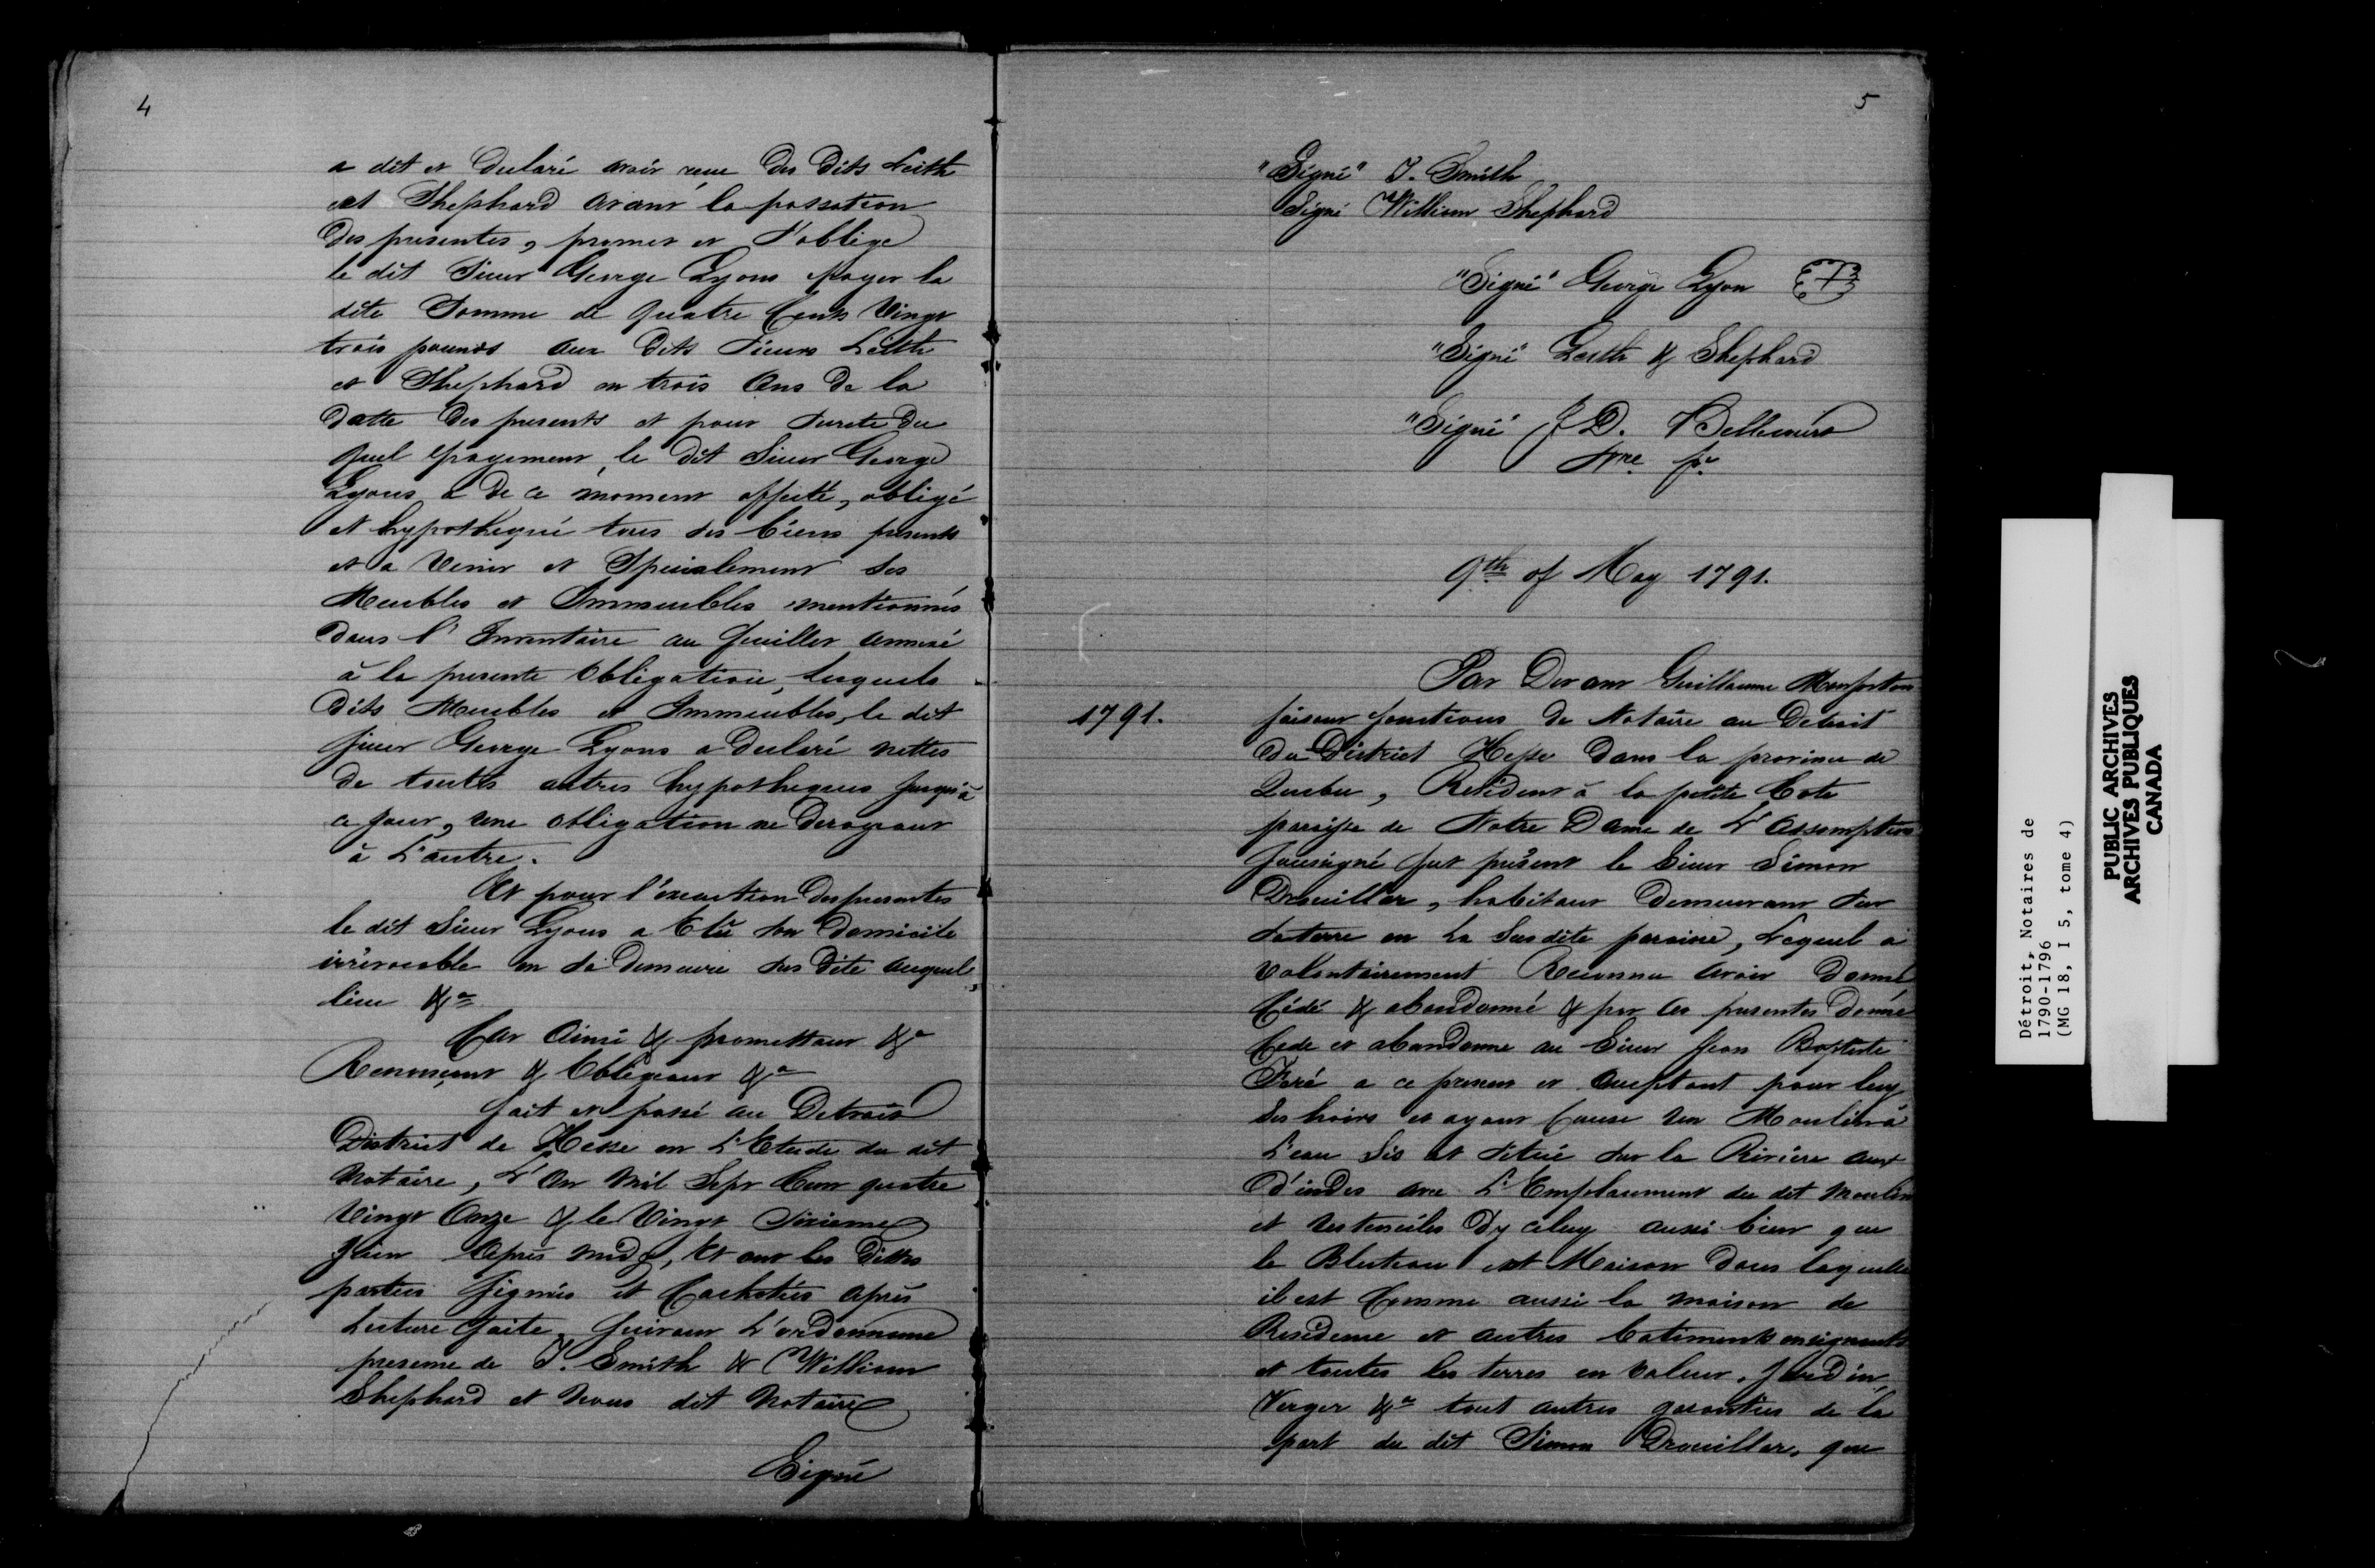 4
a dit et declaré avoir reçue des dits Leith
et Shephard avant la passation
des presentes, promet et s'oblige
le dit Sieur George Lyons payer la
dite Somme de quatre Cents Vingt
trois pounds aux dits Sieurs Leith
et Shephard en trois Ans de la
datte des presents et pour surete du
quel payement, le dit Sieur George
Lyons a de ce moment affecté, obligé
et hypothequé tous ses biens presents
et a Venir et Specialement ses
Meubles et Immeubles mentionnés
dans l'Inventaire au feuillet annexé
à la presente Obligation, lesquels
dits Meubles et Immeubles, le dit
Sieur George Lyons a declaré nettes
de toutes autres hypotheques jusqu'à
ce jour, une obligation ne derogeant
à L'autre.
Et pour l'execution des presentes
le dit Sieur Lyons a Elû son Domicile
irrévocable en sa demeure sus dite auquel
lieu &a
Car Ainsi & promettant &a
Renonçant & Obligeant &a
fait et passé au Detroit
District de Hesse en L'Etude du dit
Notaire, L'An Mil Sept Cent quatre
Vingt Onze & le Vingt Sixieme
Juin Après midy, Et ont les dittes
parties signés et Cachetés après
Lecture faite, suivant L'ordonnance
presence de J. Smith & William
Shephard et Nous dit Notaire
Signé
5
"Signé" J. Smith
Signé William Shephard
"Signé" George Lyon
"Signé" Leith & Shephard
"Signé" F D. Bellecour
Nre p.
9th of May 1791.
Par Devant Guillaume Monforton
1791. faisant fonctions de Notaire au Detroit
du District Hesse dans la province de
Quebec, Résident à la petite Cote
paroisse de Notre Dame de L'Assomption
soussigné fut présent le Sieur Simon
Drouillar, habitant demeurant sur
sa terre en La Susdite paroisse, Lequel a
volontairement Reconnu avoir donné
Cédé & abandonné & par Ces presentes donne
Cede et abandonne au Sieur Jean Baptiste
Faré a ce present et acceptant pour luy
ses hoirs et ayant Cause un Moulin à
L'eau Sis et situé sur la Rivière aux
d'indes avec L'Emplacement du dit Moulin
et Ustenciles Dy celuy aussi bien que
le Bluteau et Maison dans laquelle
il est Comme aussi la maison de
Residence et autres batiments
et toutes les terres en valeur, Jardin,
Verger &a tout autres garanties de la
part du dit Simon Drouillar, que
Détroit, Notaires de
1790-1796
(MG 18, I 5, tome 4)
PUBLIC ARCHIVES
ARCHIVES PUBLIQUES
CANADA